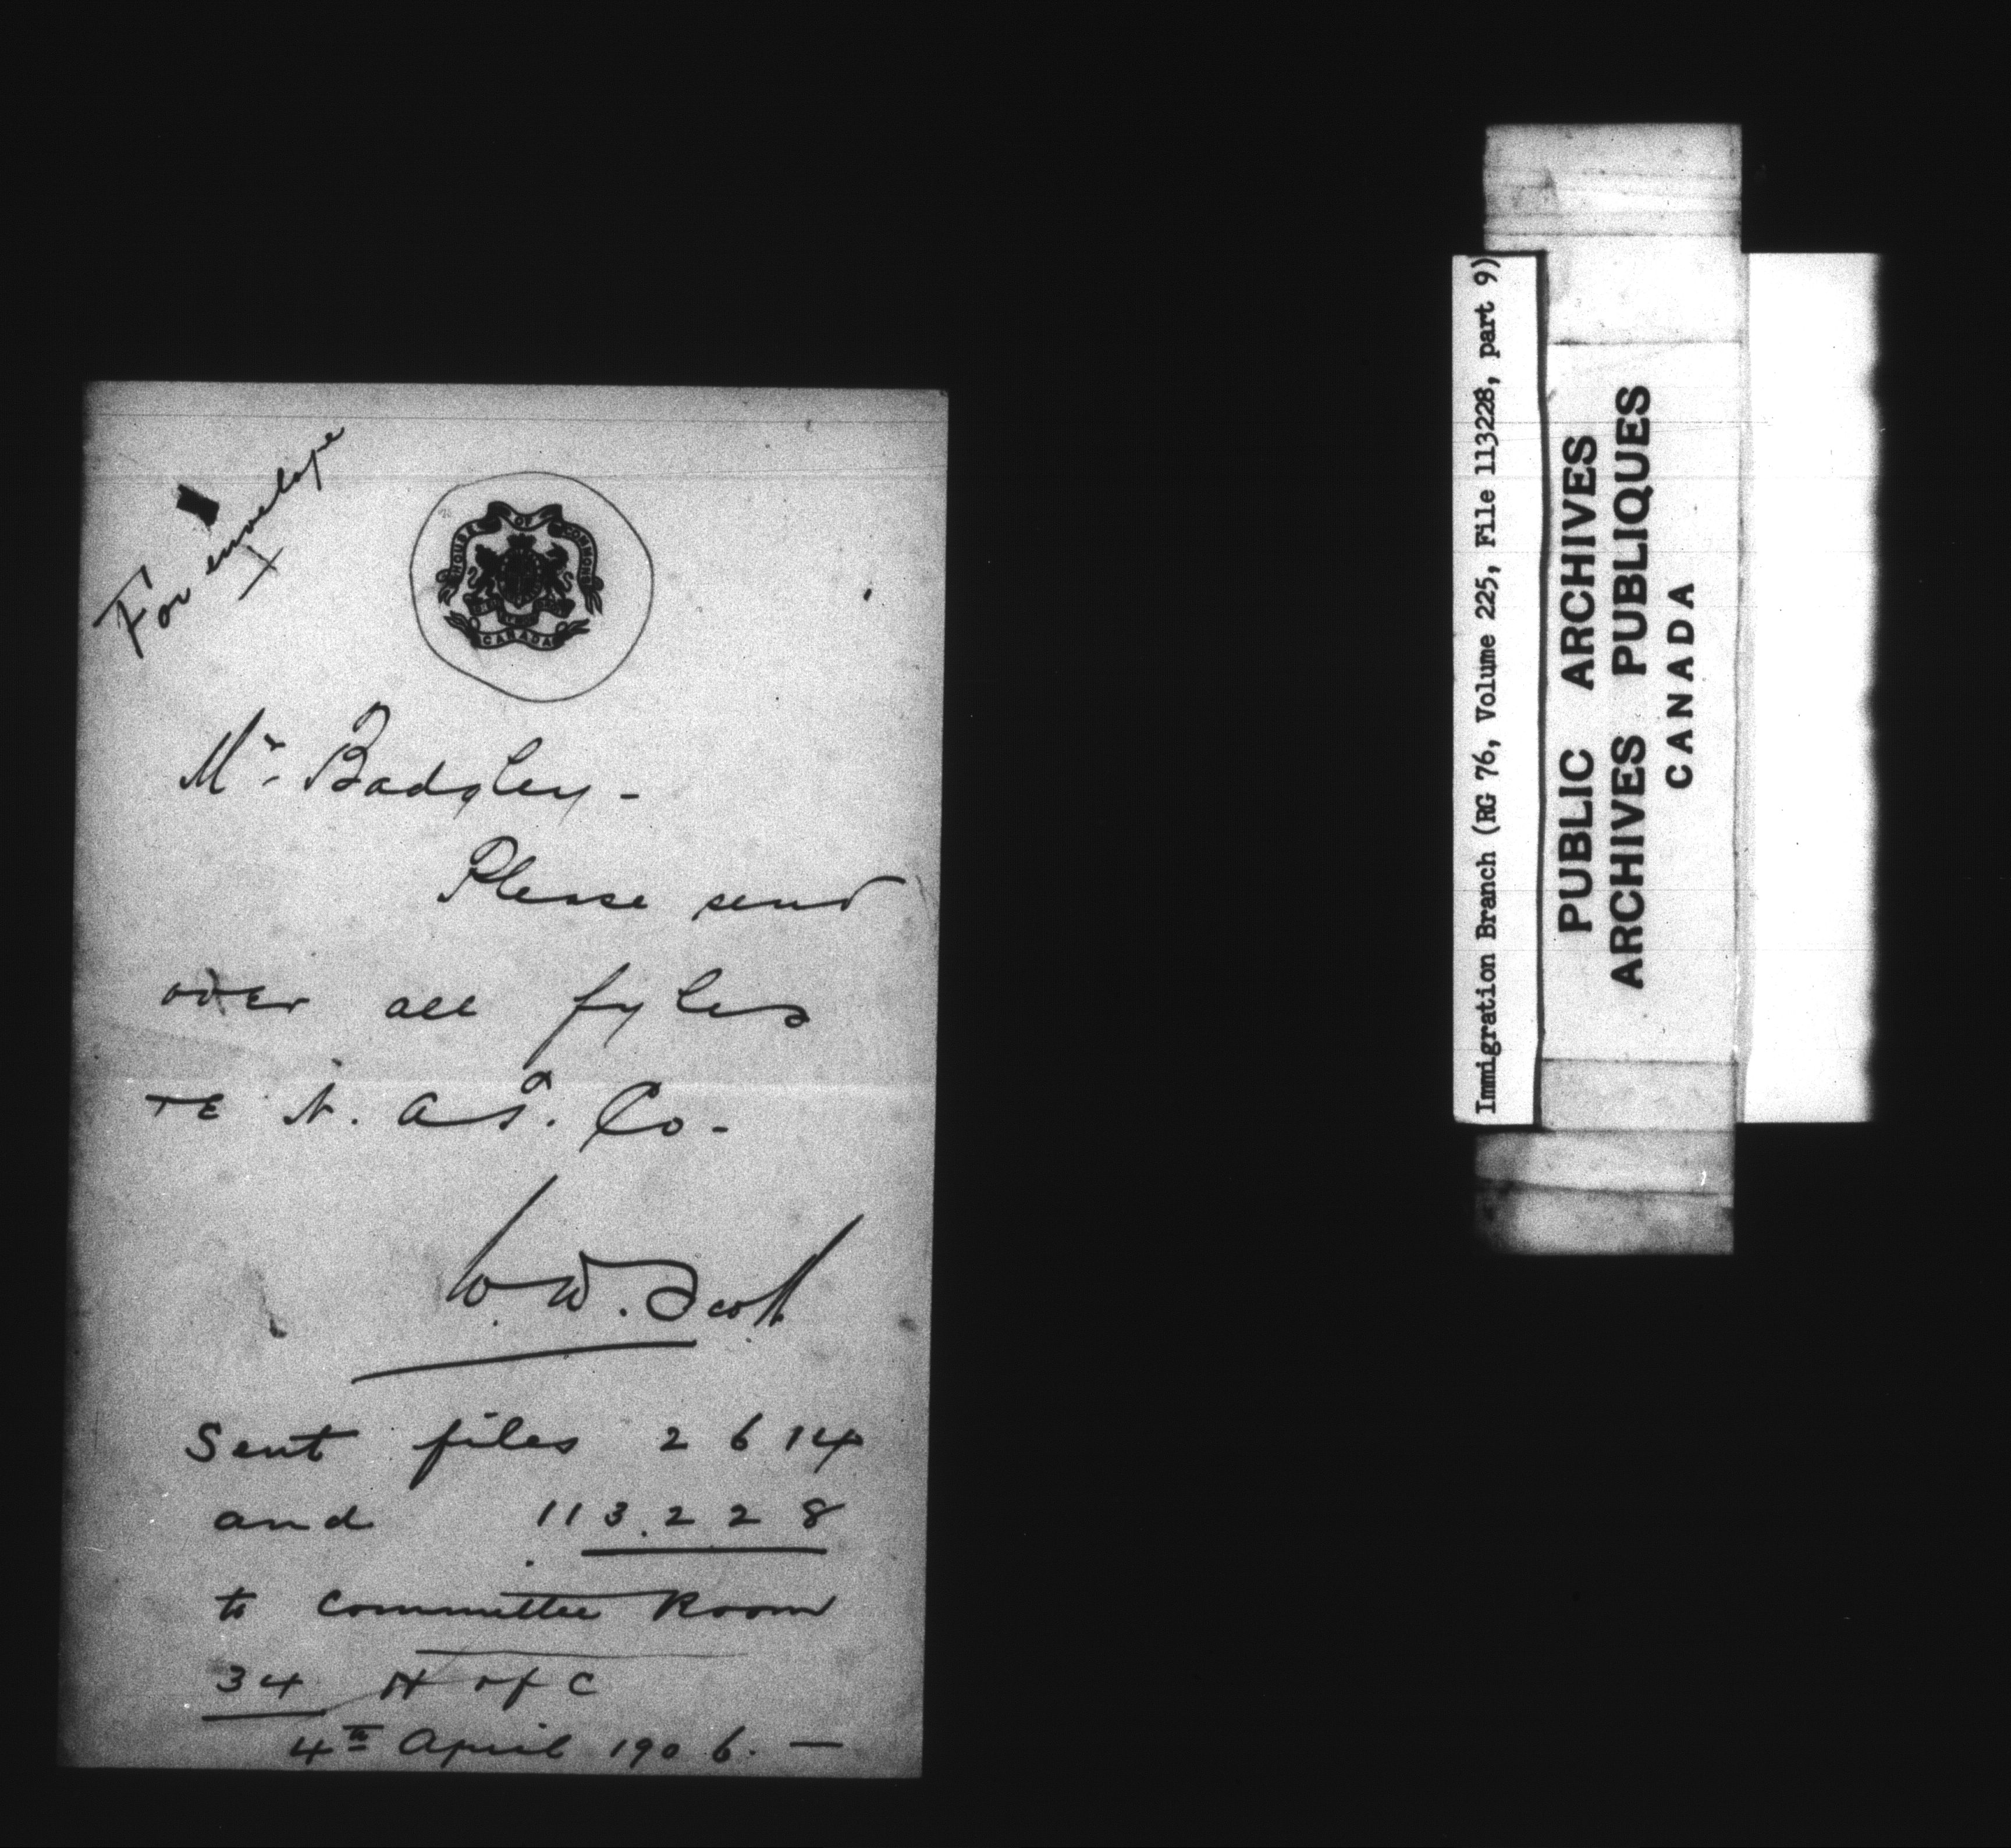 For envelope
HOUSE OF COMMONS
CANADA
Mr. Badgley -
Please send
over all fyles
re N. A. T. Co -
W. W. Scott
Sent files 2614
and 113.228
to Committee Room
34 H of C
4th April 1906. —
Immigration Branch (RG 76, Volume 225, File 113228, part 9)
PUBLIC ARCHIVES
ARCHIVES PUBLIQUES
CANADA